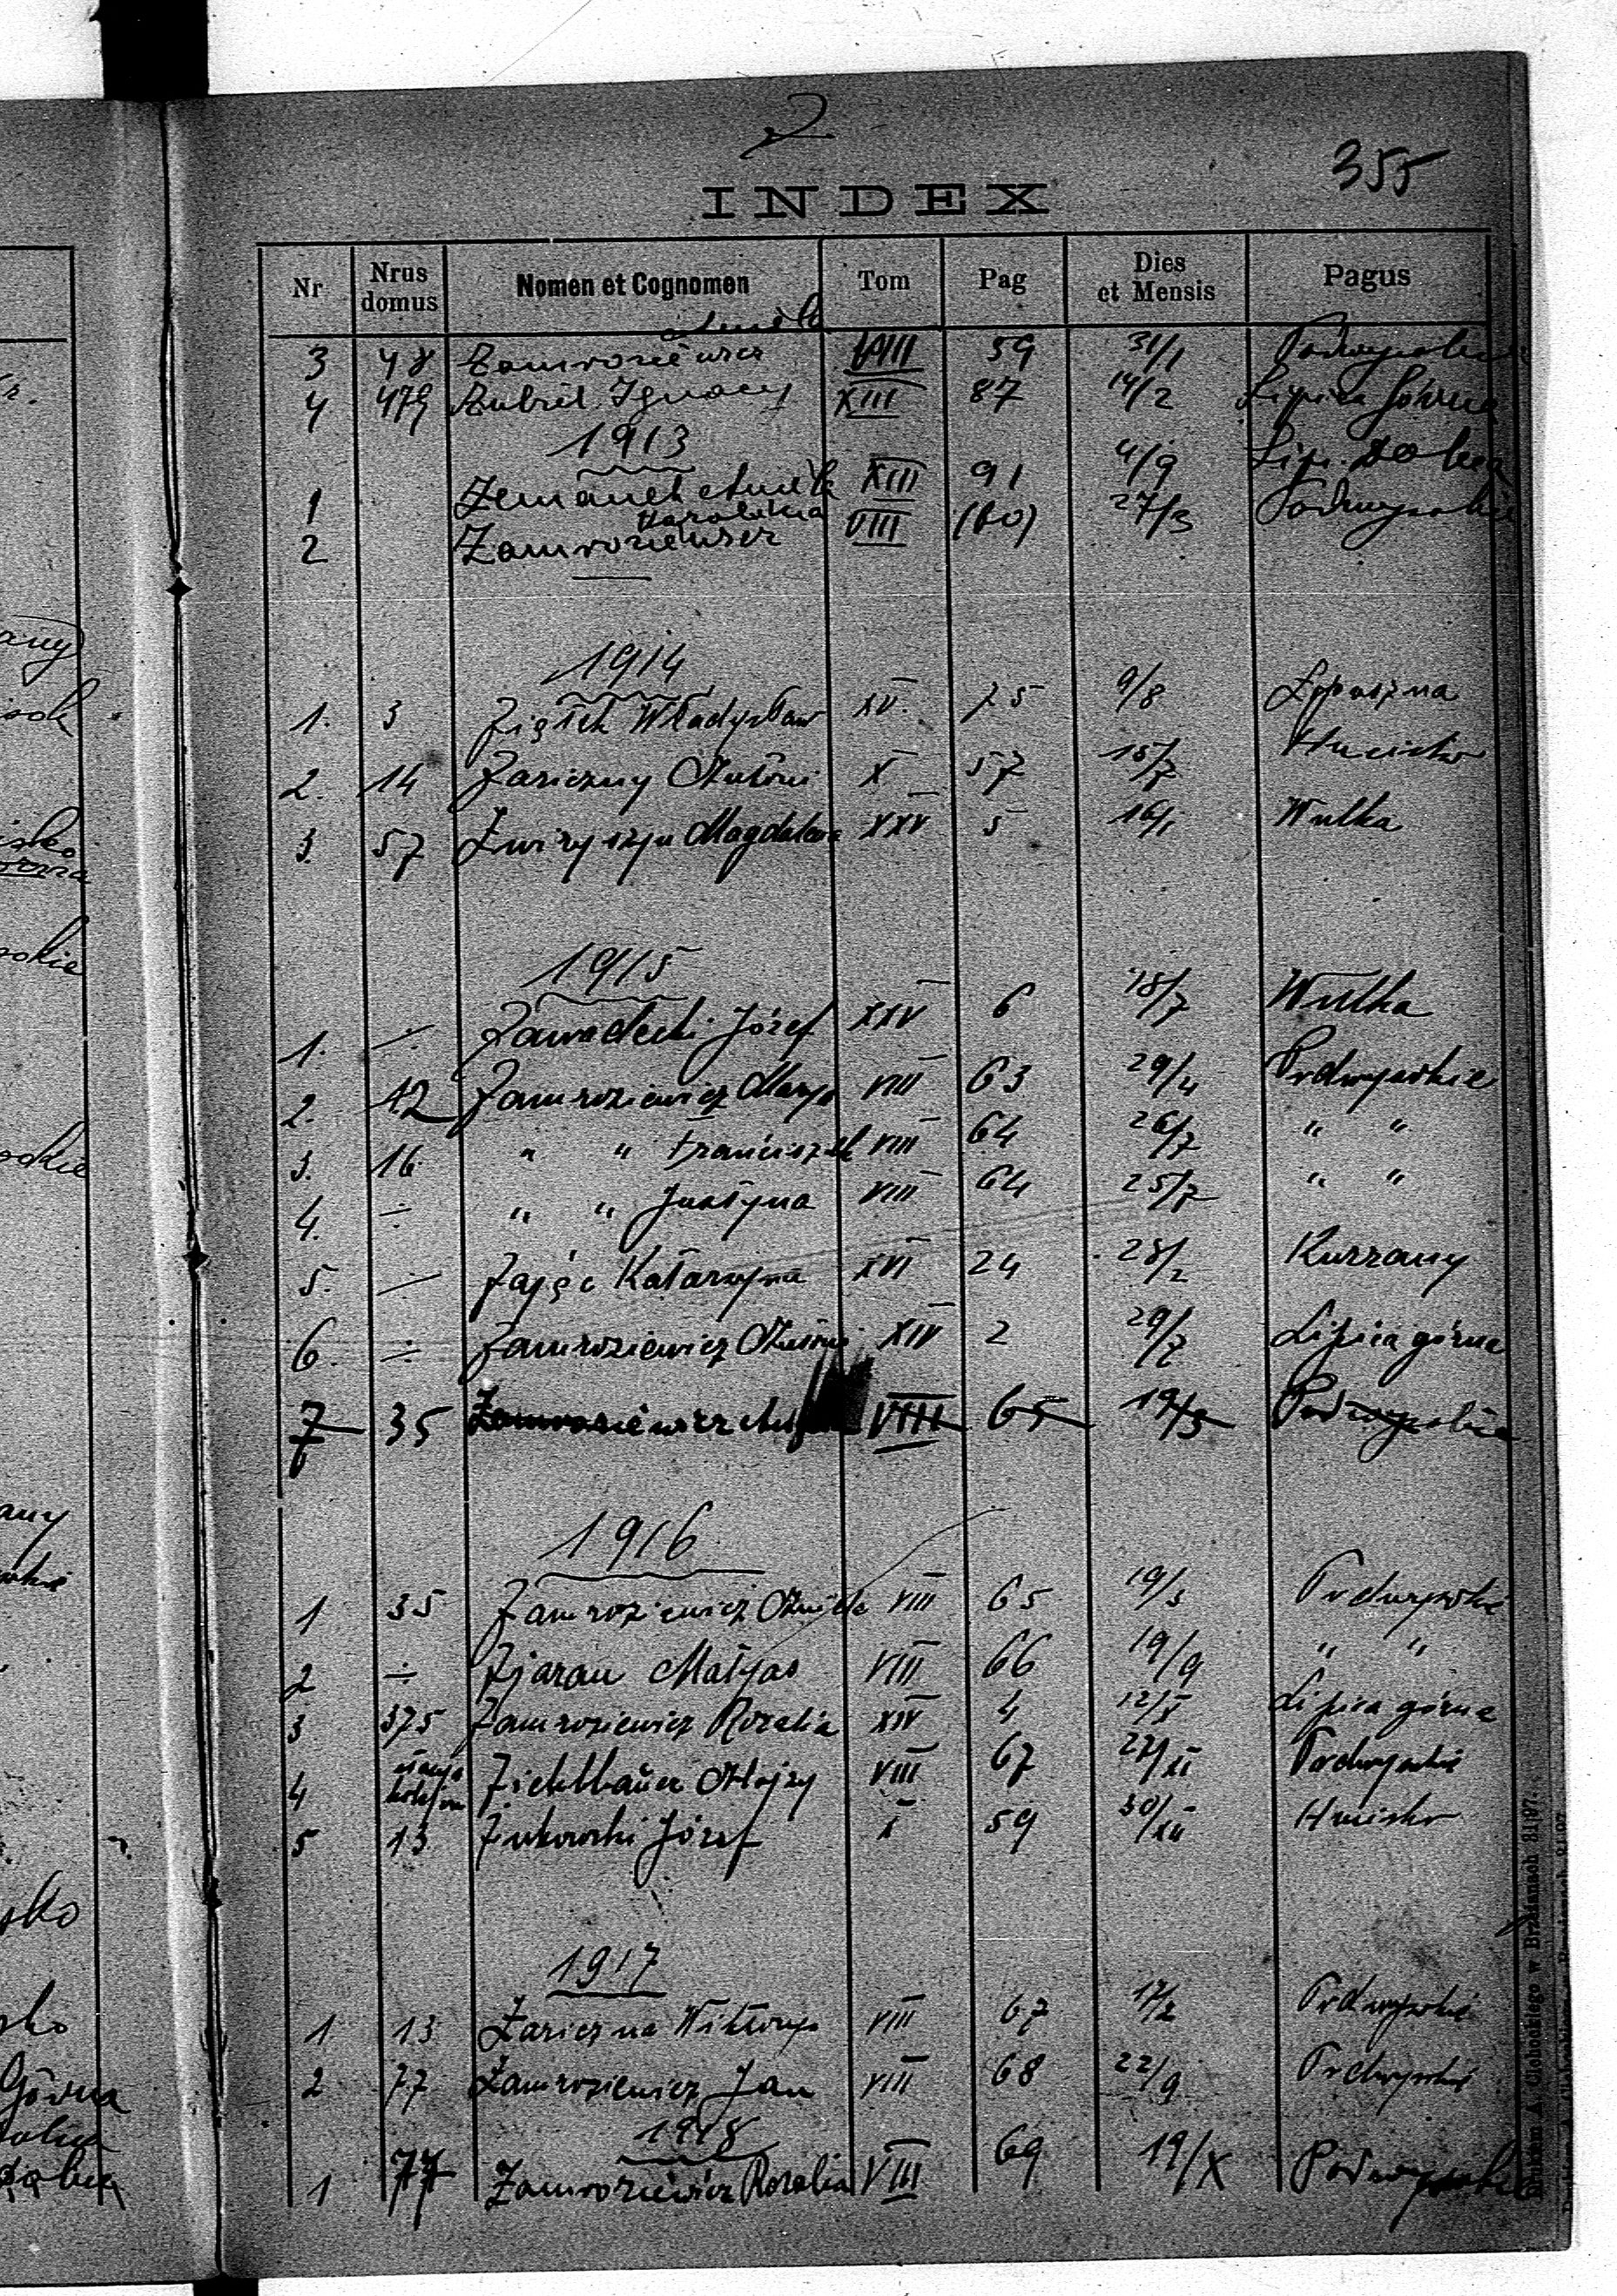 2
355
INDEX
Nr Nrus domus Nomen et Cognomen Tom Pag Dies et Mensis Pagus
Aniela
3 48 Zamroziewicz VIII 59 31/1 Podwysokie
4 479 Ignacy XIII 87 14/2 Lipica Górna
1913
1 Zemanek Aniela XIII 91 4/9 Lip. Dolna
Karolina
2 Zamroziewicz VIII (60) 27/3 Podwysokie
1914
1. 3 Ziętek Władysław XV. 25 9/8 Łopuszna
2. 14 Zariczny Antoni X 57 15/7 Hucisko
3. 57 Magdalena XXV 5 16/1 Wulka
1915
1. ÷ Zawadecki Józef XXV 6 18/7 Wulka
2. 12 Zamroziewicz Marya VIII 63 29/4 Podwysokie
3. 16 " " Franciszek VIII 64 26/7 " "
4. ÷ " " Justyna VIII 64 25/7 " "
5. ÷ Zając Katarzyna XVI 24 28/2 Kurzany
6. ÷ Zamroziewicz Antoni XIV 2 29/7 Lipica górna
7 35 Zamroziewicz VIII 65 19/3 Podwysokie
1916
1 35 Zamroziewicz Aniela VIII 65 19/3 Podwysokie
2 ÷ Zjaran Matyas VIII 66 19/9 " "
3 375 Zamroziewicz Rozalia XIV 4 12/X Lipica górna
4 Alojzy VIII 67 27/XI Podwysokie
5 13 Żukowski Józef X 59 30/XII Hucisko
1917
1 13 Zariczna Wiktorya VIII 67 17/2 Podwysokie
2 77 Zamroziewicz Jan VIII 68 22/9 Podwysokie
1918
1 77 Zamroziewicz Rozalia VIII 69 19/X Podwysokie